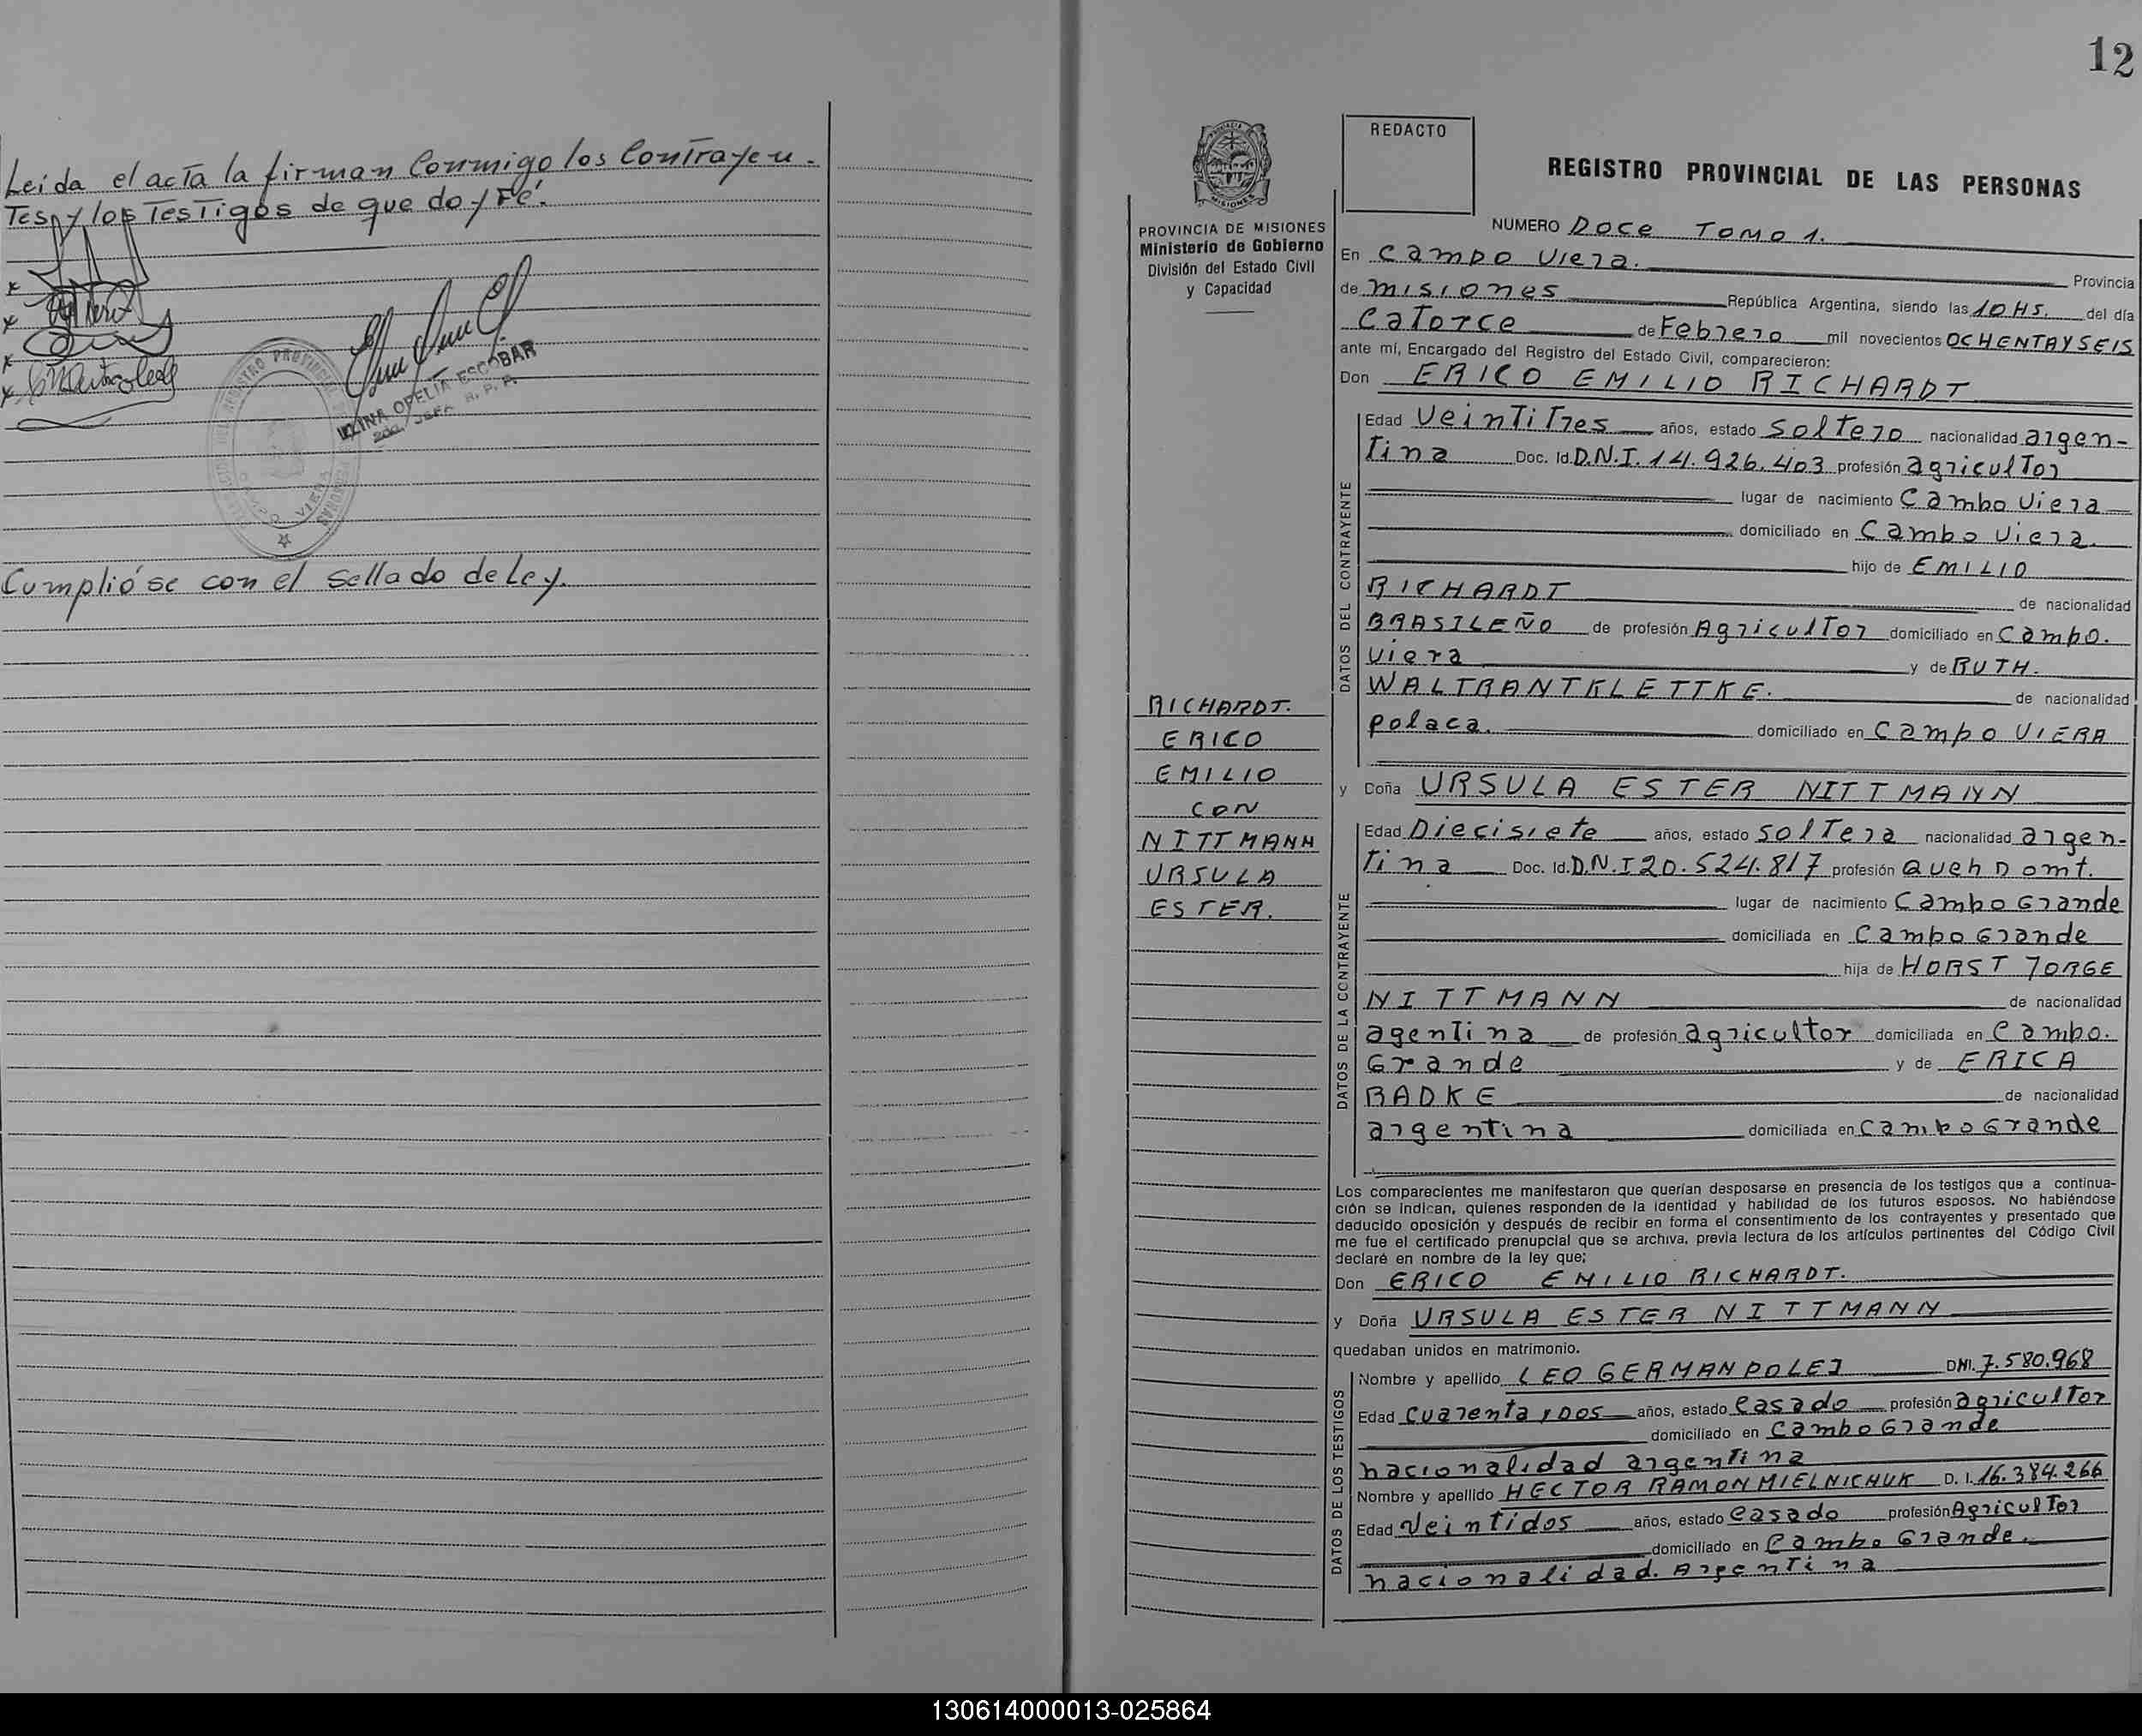 Leida el acta la firman Conmigo los Contrayen-
Tes y los Testigos de que doy Fé.
REGISTRO PROVINCIAL DE
PERSONAS
VIERA
OFELIA ESCOBAR
JEFA R. P. P.
Cumplióse con el sellado de Ley.
12
PROVINCIA DE MISIONES
Ministerio de Gobierno
División del Estado Civil
y Capacidad
RICHARDT.
ERICO
EMILIO
CON
NITTMANN
URSULA
ESTER.
REDACTO
REGISTRO PROVINCIAL DE LAS PERSONAS
NUMERO DOCE TOMO 1.
En Campo Viera. Provincia
de misiones República Argentina, siendo las 10 HS. del día
Catorce de Febrero mil novecientos OCHENTAYSEIS
ante mí, Encargado del Registro del Estado Civil, comparecieron:
Don ERICO EMILIO RICHARDT
DATOS DEL CONTRAYENTE
Edad Veintitres años, estado Soltero nacionalidad argen-
tina Doc. Id. D.N.I. 14.926.403 profesión agricultor
lugar de nacimiento Campo Viera
domiciliado en Campo Viera.
hijo de EMILIO
RICHARDT de nacionalidad
BRASILEÑO de profesión Agricultor domiciliado en Campo.
Viera y de RUTH.
WALTRANTKLETTKE. de nacionalidad
polaca. domiciliado en Campo VIERA
y Doña URSULA ESTER NITTMANN
DATOS DE LA CONTRAYENTE
Edad Diecisiete años, estado soltera nacionalidad argen-
tina Doc. Id. D.N.I 20.524.817 profesión Quehdomt.
lugar de nacimiento Campo Grande
domiciliada en Campo Grande
hija de HORST JORGE
NITTMANN de nacionalidad
agentina de profesión agricultor domiciliada en Campo.
Grande y de ERICA
RADKE de nacionalidad
argentina domiciliada en Campo Grande
Los comparecientes me manifestaron que querían desposarse en presencia de los testigos que a continua-
ción se indican, quienes responden de la identidad y habilidad de los futuros esposos. No habiéndose
deducido oposición y después de recibir en forma el consentimiento de los contrayentes y presentado que
me fue el certificado prenupcial que se archiva, previa lectura de los artículos pertinentes del Código Civil
declaré en nombre de la ley que;
Don ERICO EMILIO RICHARDT.
y Doña URSULA ESTER NITTMANN
quedaban unidos en matrimonio.
DATOS DE LOS TESTIGOS
Nombre y apellido LEO GERMAN POLEJ DNI. 7.580.968
Edad Cuarenta y DOS años, estado Casado profesión agricultor
domiciliado en Campo Grande
nacionalidad argentina
Nombre y apellido HECTOR RAMON MIELNICHUK D. I. 16.384.266
Edad Veintidos años, estado Casado profesión Agricultor
domiciliado en Campo Grande.
nacionalidad. Argentina
130614000013-025864